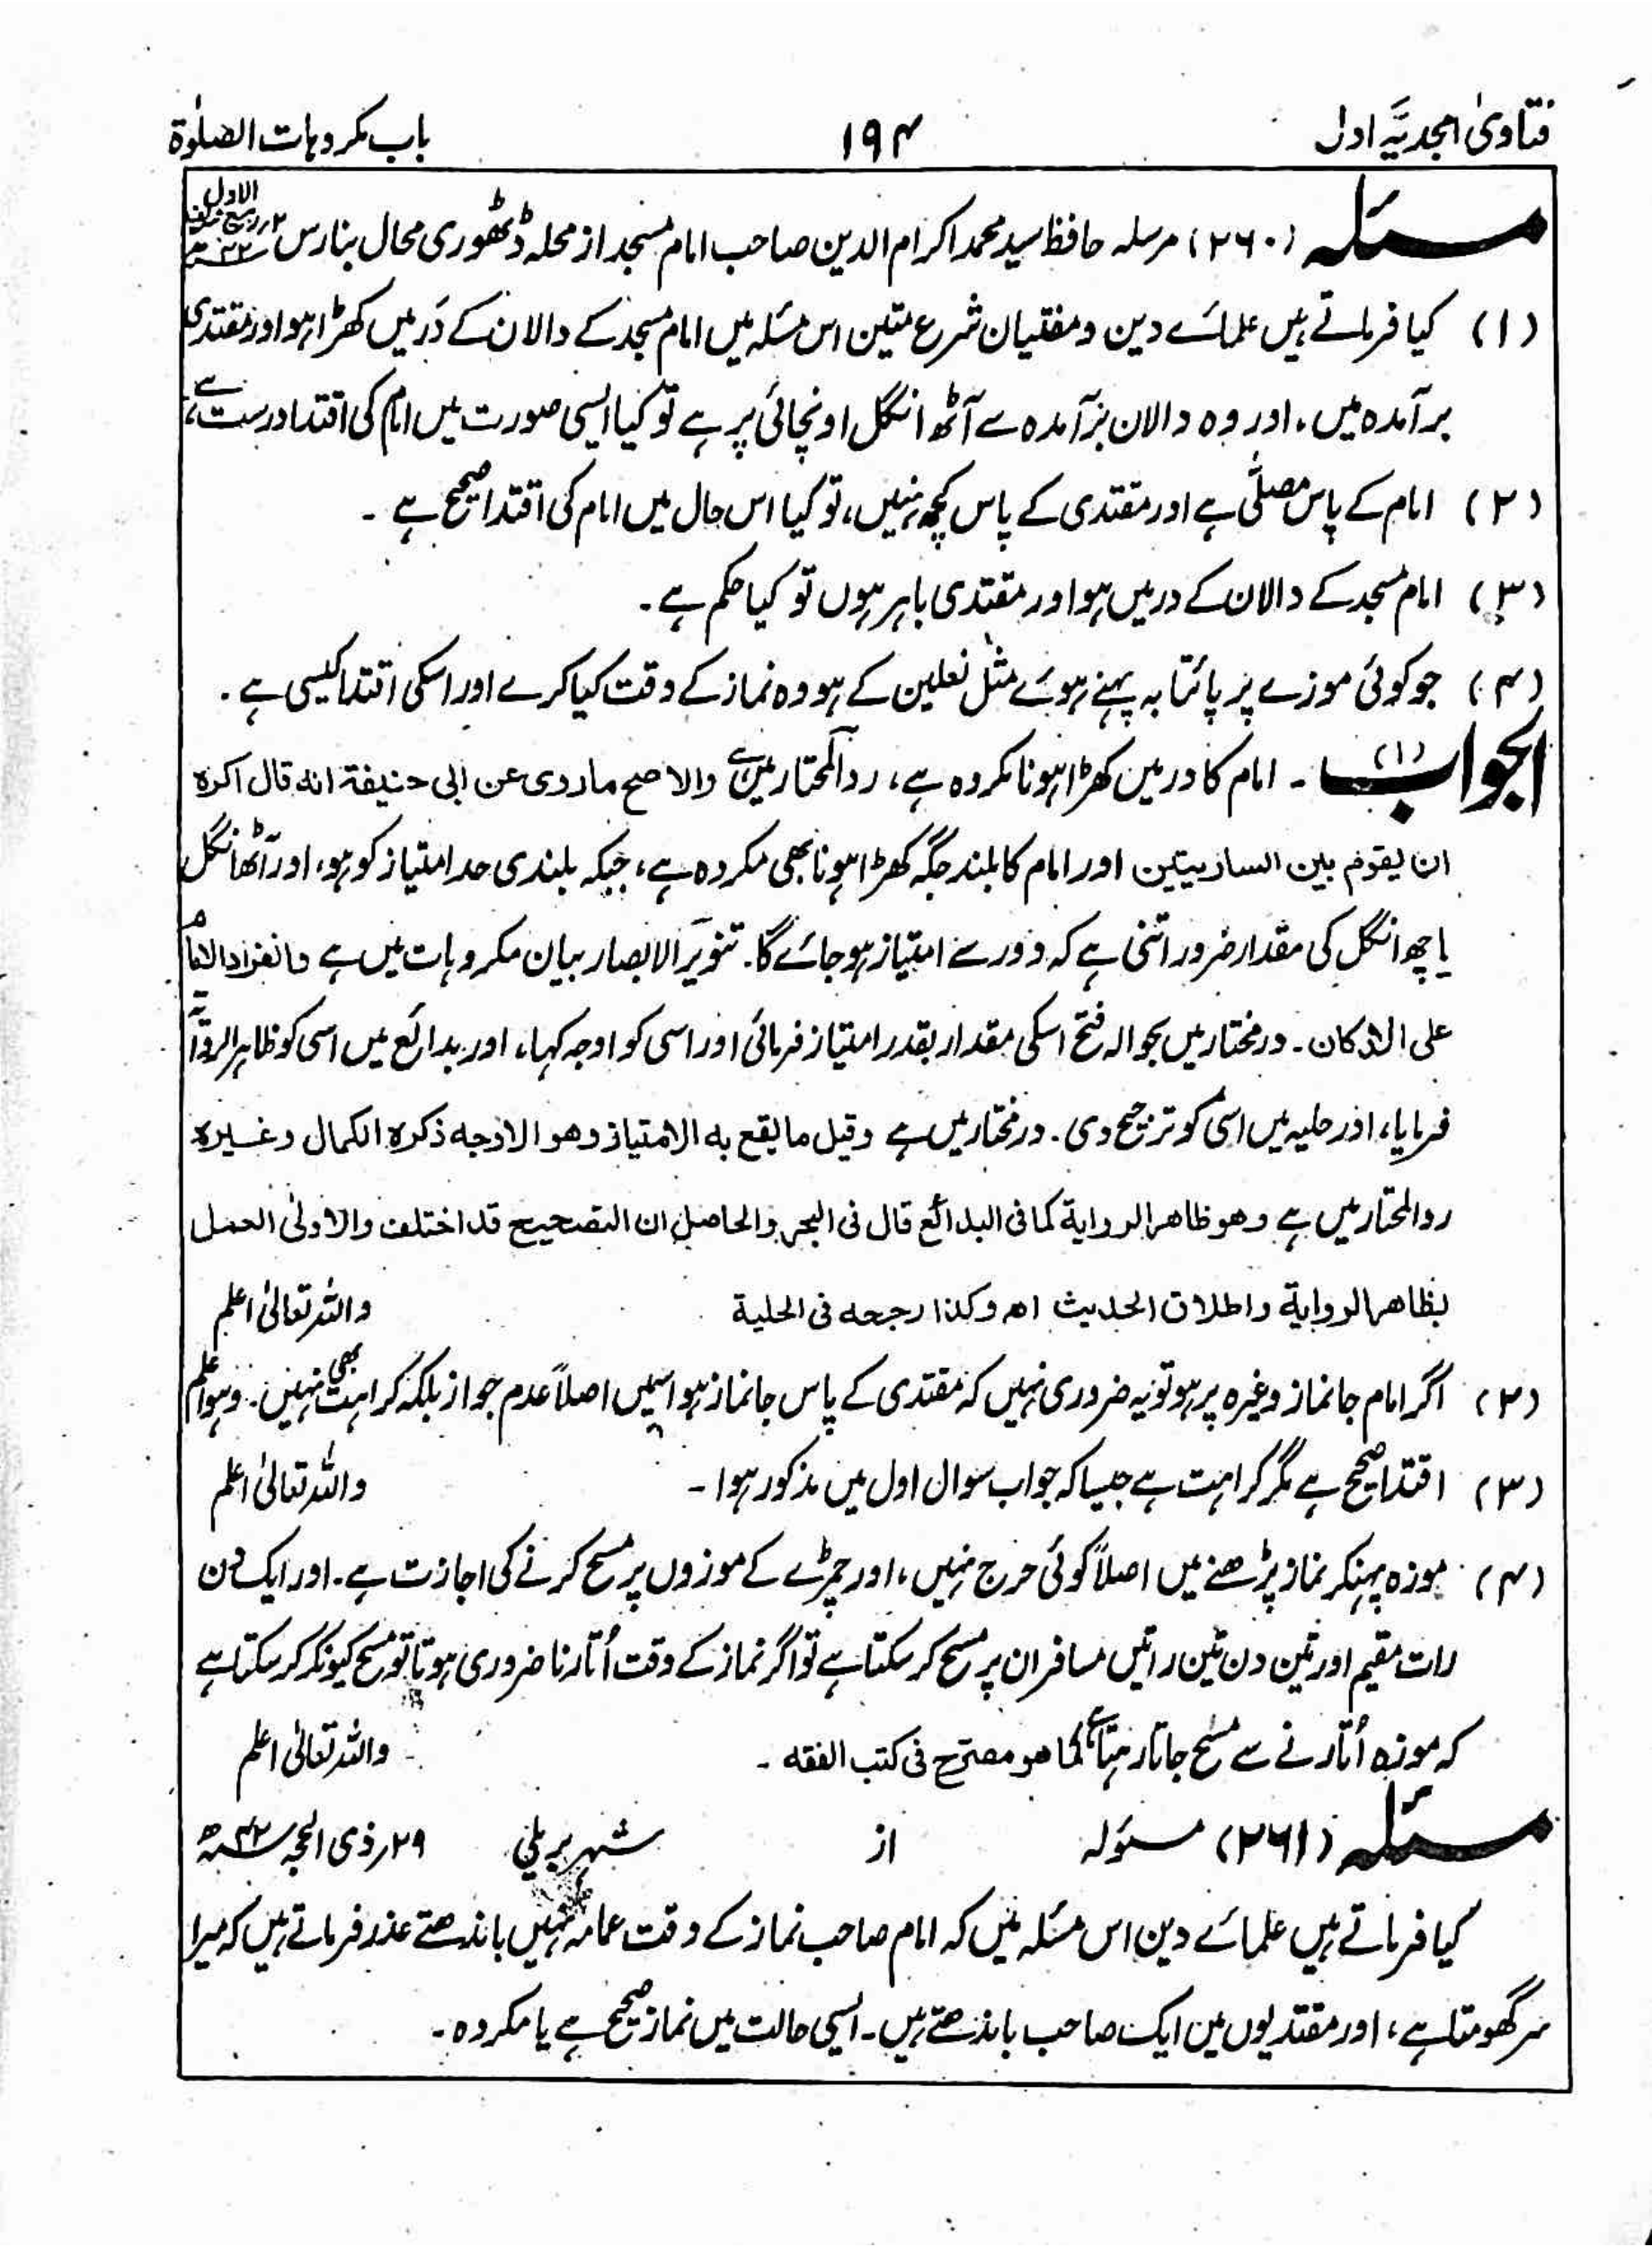 فتاویٰ امجدیہ اول ۱۹۴ باب مکروہات الصلوٰۃ
مسئلہ (۲۶۰) مرسلہ حافظ سید محمد اکرام الدین صاحب امام مسجد از محلہ ڈٹھوری محال بنارس ۲ ربیع الاول
(۱) کیا فرماتے ہیں علمائے دین و مفتیان شرع متین اس مسئلہ میں امام مسجد کے دالان کے دَر میں کھڑا ہو اور مقتدی
برآمدہ میں، اور وہ دالان برآمدہ سے آٹھ انگل اونچائی پر ہے تو کیا ایسی صورت میں امام کی اقتدا درست ہے،
(۲) امام کے پاس مصلّٰی ہے اور مقتدی کے پاس کچھ نہیں، تو کیا اس حال میں امام کی اقتدا صحیح ہے ۔
(۳) امام مسجد کے دالان کے در میں ہو اور مقتدی باہر ہوں تو کیا حکم ہے ۔
(۴) جو کوئی موزے پر پائتابہ پہنے ہوئے مثل نعلین کے ہو وہ نماز کے وقت کیا کرے اور اسکی اقتدا کیسی ہے ۔
الجواب (۱) ۔ امام کا در میں کھڑا ہونا مکروہ ہے، ردالمحتار میں ہے والاصح ماروی عن ابی حنیفۃ انہ قال اکرہ
ان یقوم بین الساریتین اور امام کا بلند جگہ کھڑا ہونا بھی مکروہ ہے، جبکہ بلندی حد امتیاز کو ہو، اور آٹھ انگل
یا چھ انگل کی مقدار ضرور اتنی ہے کہ دور سے امتیاز ہو جائے گا۔ تنویر الابصار بیان مکروہات میں ہے وانفراد الامام
علی الدکان ۔ درمختار میں بحوالہ فتح اسکی مقدار بقدر امتیاز فرمائی اور اسی کو اوجہ کہا، اور بدائع میں اسی کو ظاہر الروایۃ
فرمایا، اور حلیہ میں اسی کو ترجیح دی ۔ درمختار میں ہے وقیل ما یقع بہ الامتیاز وھو الاوجہ ذکرہ الکمال وغیرہ
ردالمحتار میں ہے وھو ظاھر الروایۃ کما فی البدائع قال فی البحر والحاصل ان التصحیح قد اختلف والاولیٰ العمل
بظاھر الروایۃ واطلاق الحدیث اھ وکذا رجحہ فی الحلیۃ واللہ تعالیٰ اعلم
(۲) اگر امام جانماز وغیرہ پر ہو تو یہ ضروری نہیں کہ مقتدی کے پاس جانماز ہو اسمیں اصلاً عدم جواز بلکہ کراہت بھی نہیں ۔ وھو اعلم
(۳) اقتدا صحیح ہے مگر کراہت ہے جیسا کہ جواب سوال اول میں مذکور ہوا ۔ واللہ تعالیٰ اعلم
(۴) موزہ پہنکر نماز پڑھنے میں اصلاً کوئی حرج نہیں، اور چمڑے کے موزوں پر مسح کرنے کی اجازت ہے ۔ اور ایک دن
رات مقیم اور تین دن تین راتیں مسافر ان پر مسح کر سکتا ہے تو اگر نماز کے وقت اُتارنا ضروری ہوتا تو مسح کیونکر کر سکتا ہے
کہ موزہ اُتارنے سے مسح جاتا رہتا ہے کما ھو مصرّح فی کتب الفقہ ۔ واللہ تعالیٰ اعلم
مسئلہ (۲۶۱) مسئولہ از شہر بریلی ۲۹ ذی الحجہ ۴۲ھ
کیا فرماتے ہیں علمائے دین اس مسئلہ میں کہ امام صاحب نماز کے وقت عمامہ نہیں باندھتے عذر فرماتے ہیں کہ میرا
سر گھومتا ہے، اور مقتدیوں میں ایک صاحب باندھتے ہیں ۔ ایسی حالت میں نماز صحیح ہے یا مکروہ ۔